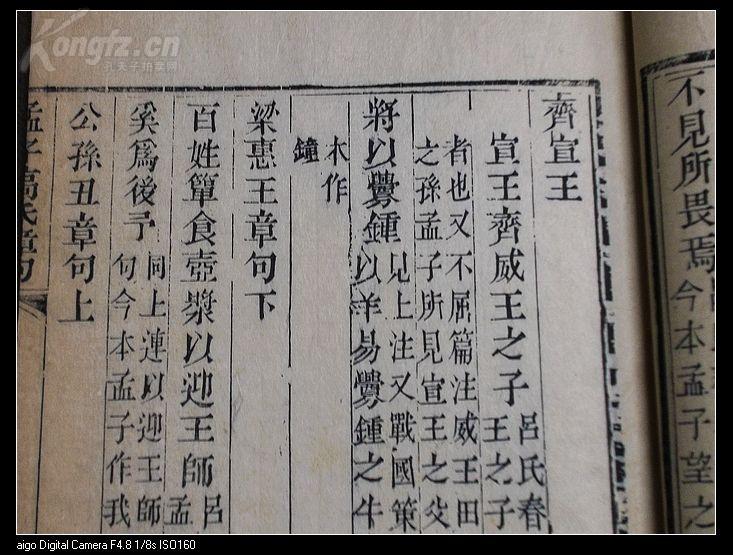 不見所畏焉
今本孟子望之
齊宣王
宣王齊威王之子
呂氏春
王之子
者也又不屈篇注威王田
之孫孟子所見宣王之父
將以釁鍾
見上注又戰國策
以羊易釁鍾之牛
木作
鐘
梁惠王章句下
百姓簞食壺漿以迎王師
呂
孟
奚爲後予
同上連以迎王師
句今本孟子作我
公孫丑章句上
孟子高氏章句
Kongfz.cn
孔夫子拍賣网
aigo Digital Camera F4.8 1/8s ISO160